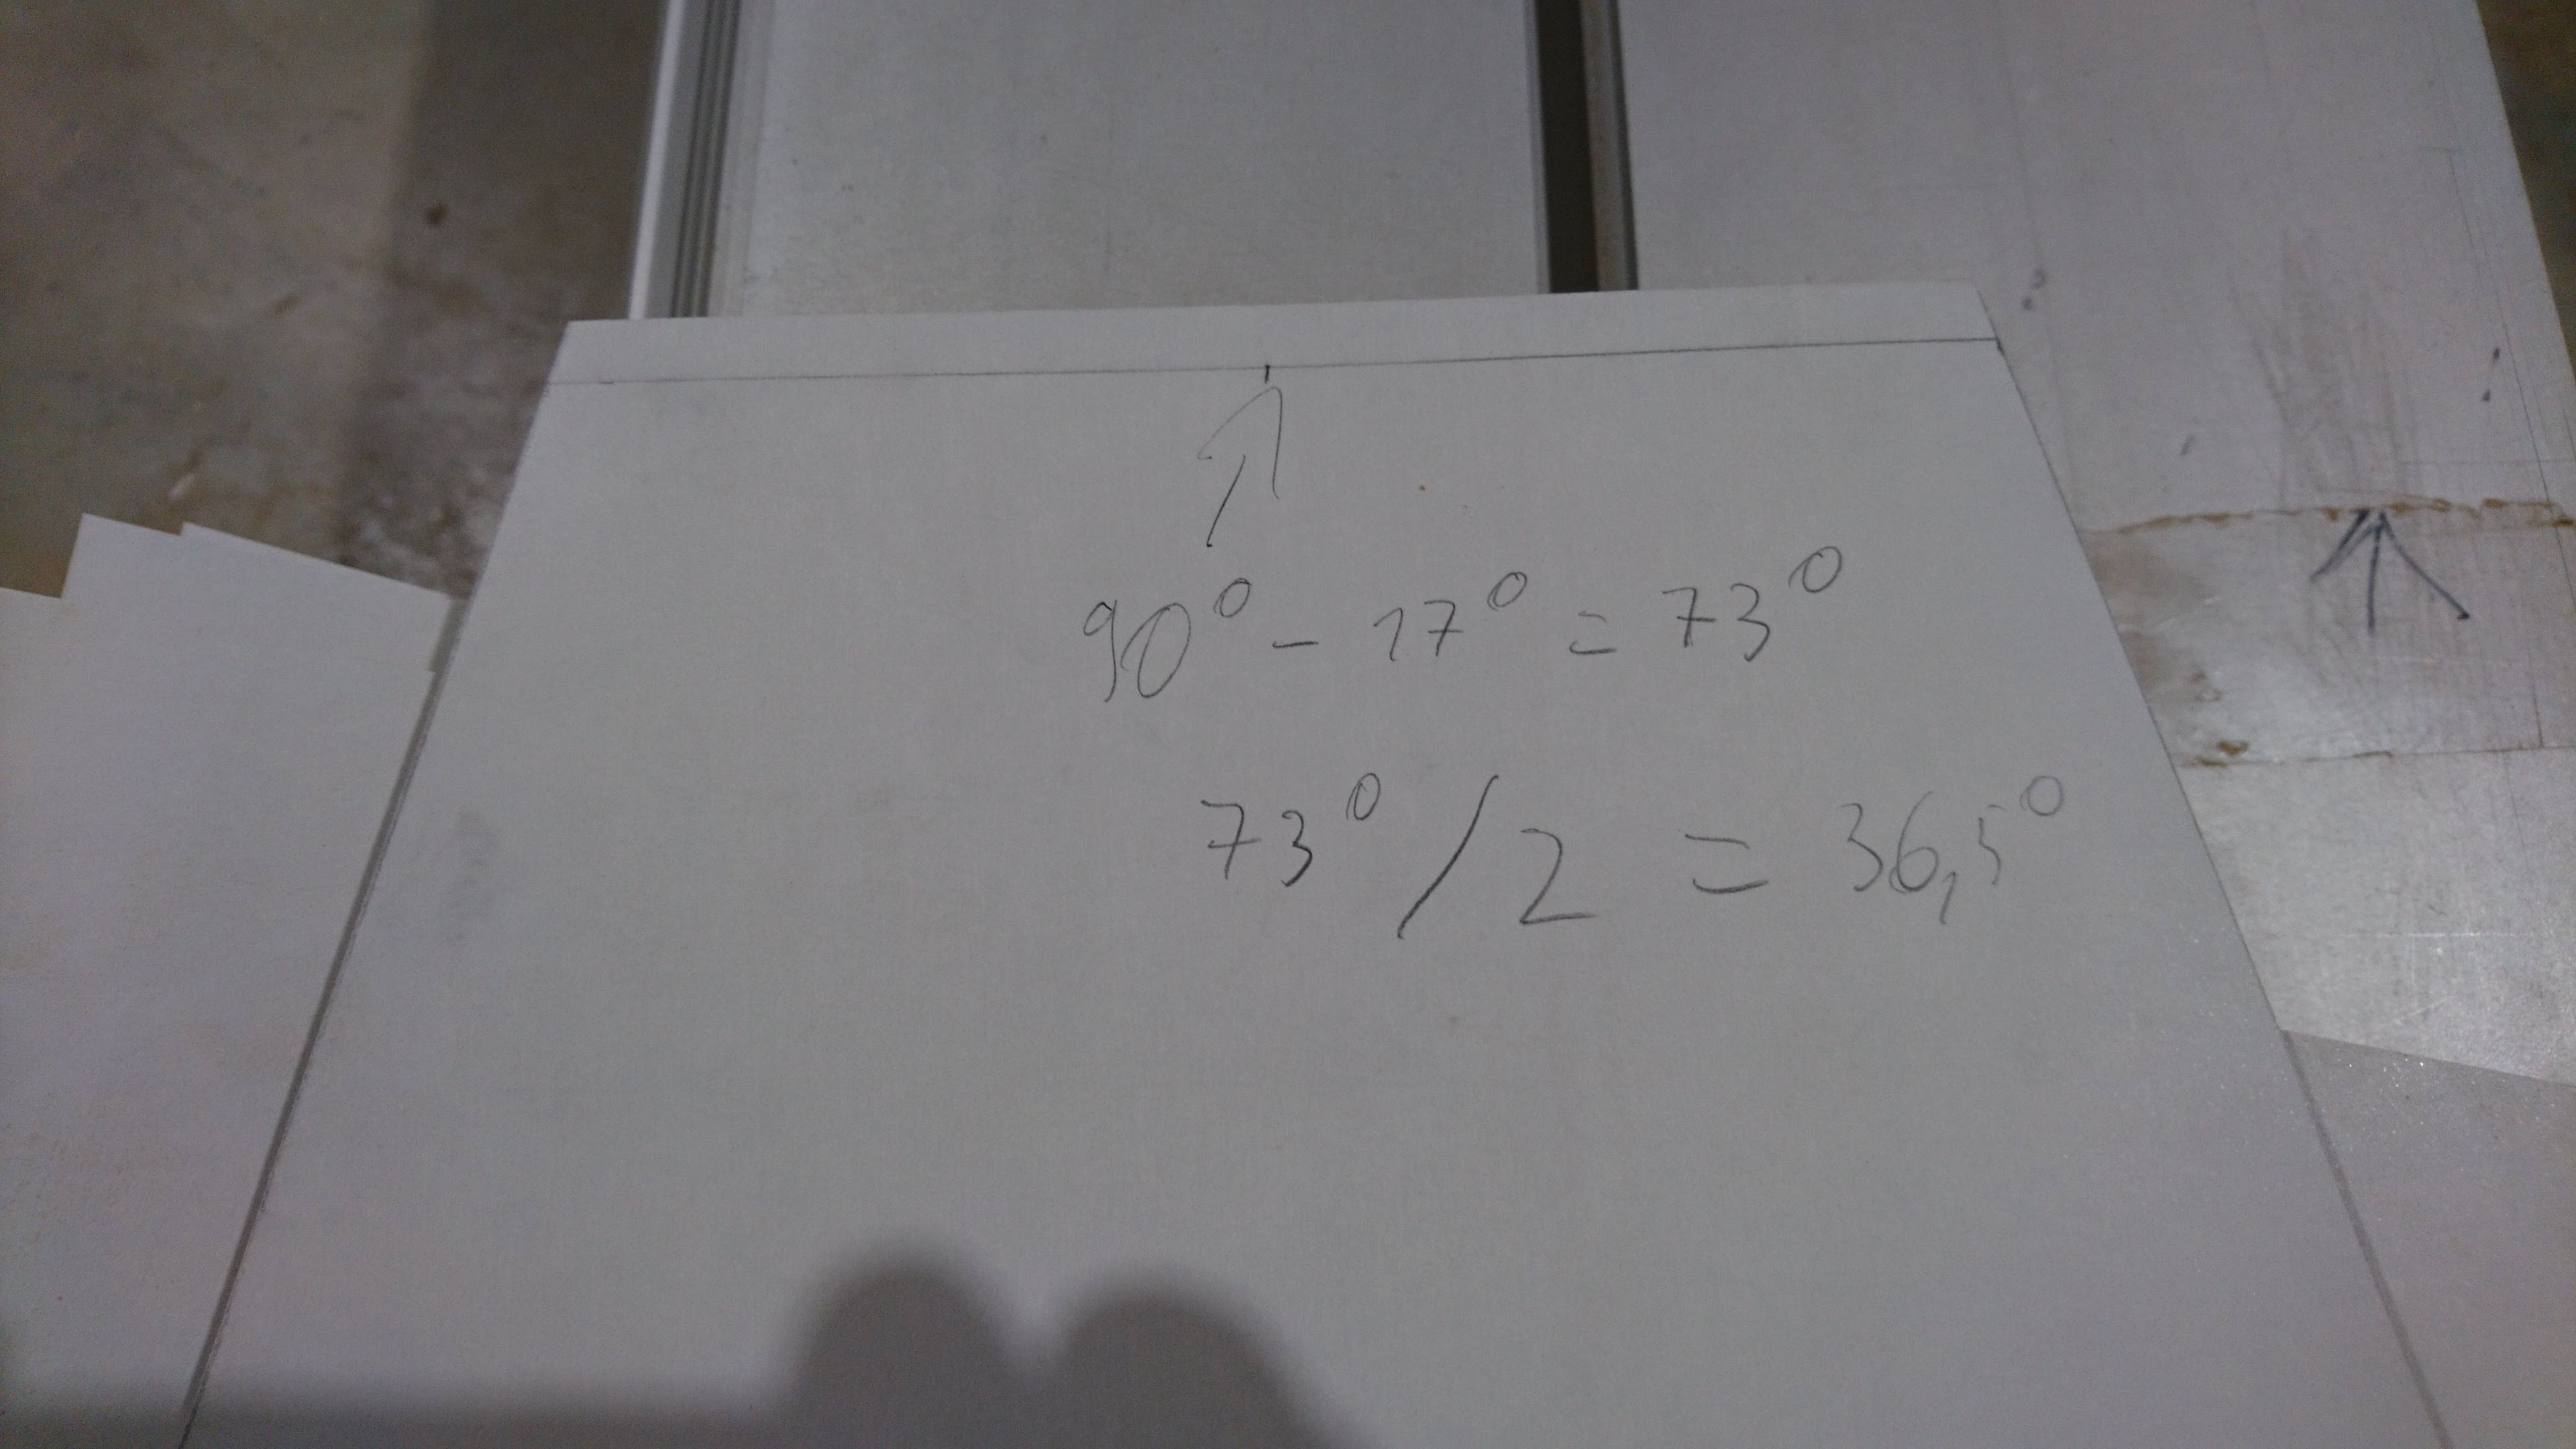 90° - 17° = 73°
73° / 2 = 36,5°